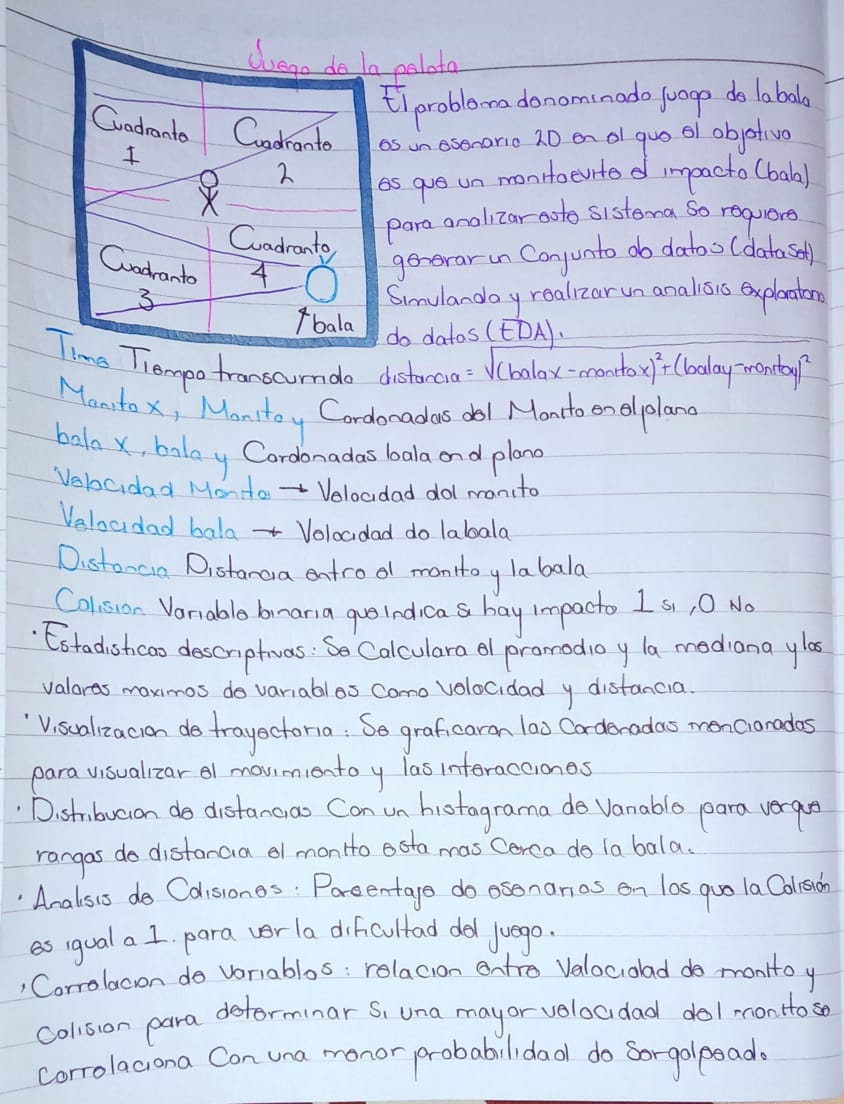 Juego de la pelota
Cuadrante
1
Cuadrante
2
Cuadrante
3
Cuadrante
4
bala
El problema denominado juego de la bala
es un esenario 2D en el que el objetivo
es que un monito evite el impacto (bala)
para analizar este sistema se requiere
generar un Conjunto de datos (dataset)
Simulando y realizar un analisis exploratorio
de datos (EDA).
Time Tiempo transcurrido distancia = √(balax - monitox)² + (balay - monitoy)²
Monito x, Monito y Cordenadas del Monito en el plano
bala x, bala y Cordenadas bala en el plano
Velocidad Monito → Velocidad del monito
Velocidad bala → Velocidad de la bala
Distancia Distancia entre el monito y la bala
Colision Variable binaria que indica si hay impacto 1 si, 0 No
· Estadisticas descriptivas: Se Calculara el promedio y la mediana y los
valores maximos de variables como velocidad y distancia.
· Visualizacion de trayectoria: Se graficaran las Cordenadas mencionadas
para visualizar el movimiento y las interacciones
· Distribucion de distancias Con un histograma de Variable para ver que
rangos de distancia el monito esta mas Cerca de la bala.
· Analisis de Colisiones: Porcentaje de esenarios en los que la Colisión
es igual a 1. para ver la dificultad del juego.
· Correlacion de Variables: relacion entre Velocidad de monito y
Colision para determinar si una mayor velocidad del monito se
correlaciona Con una menor probabilidad de Ser golpeado.